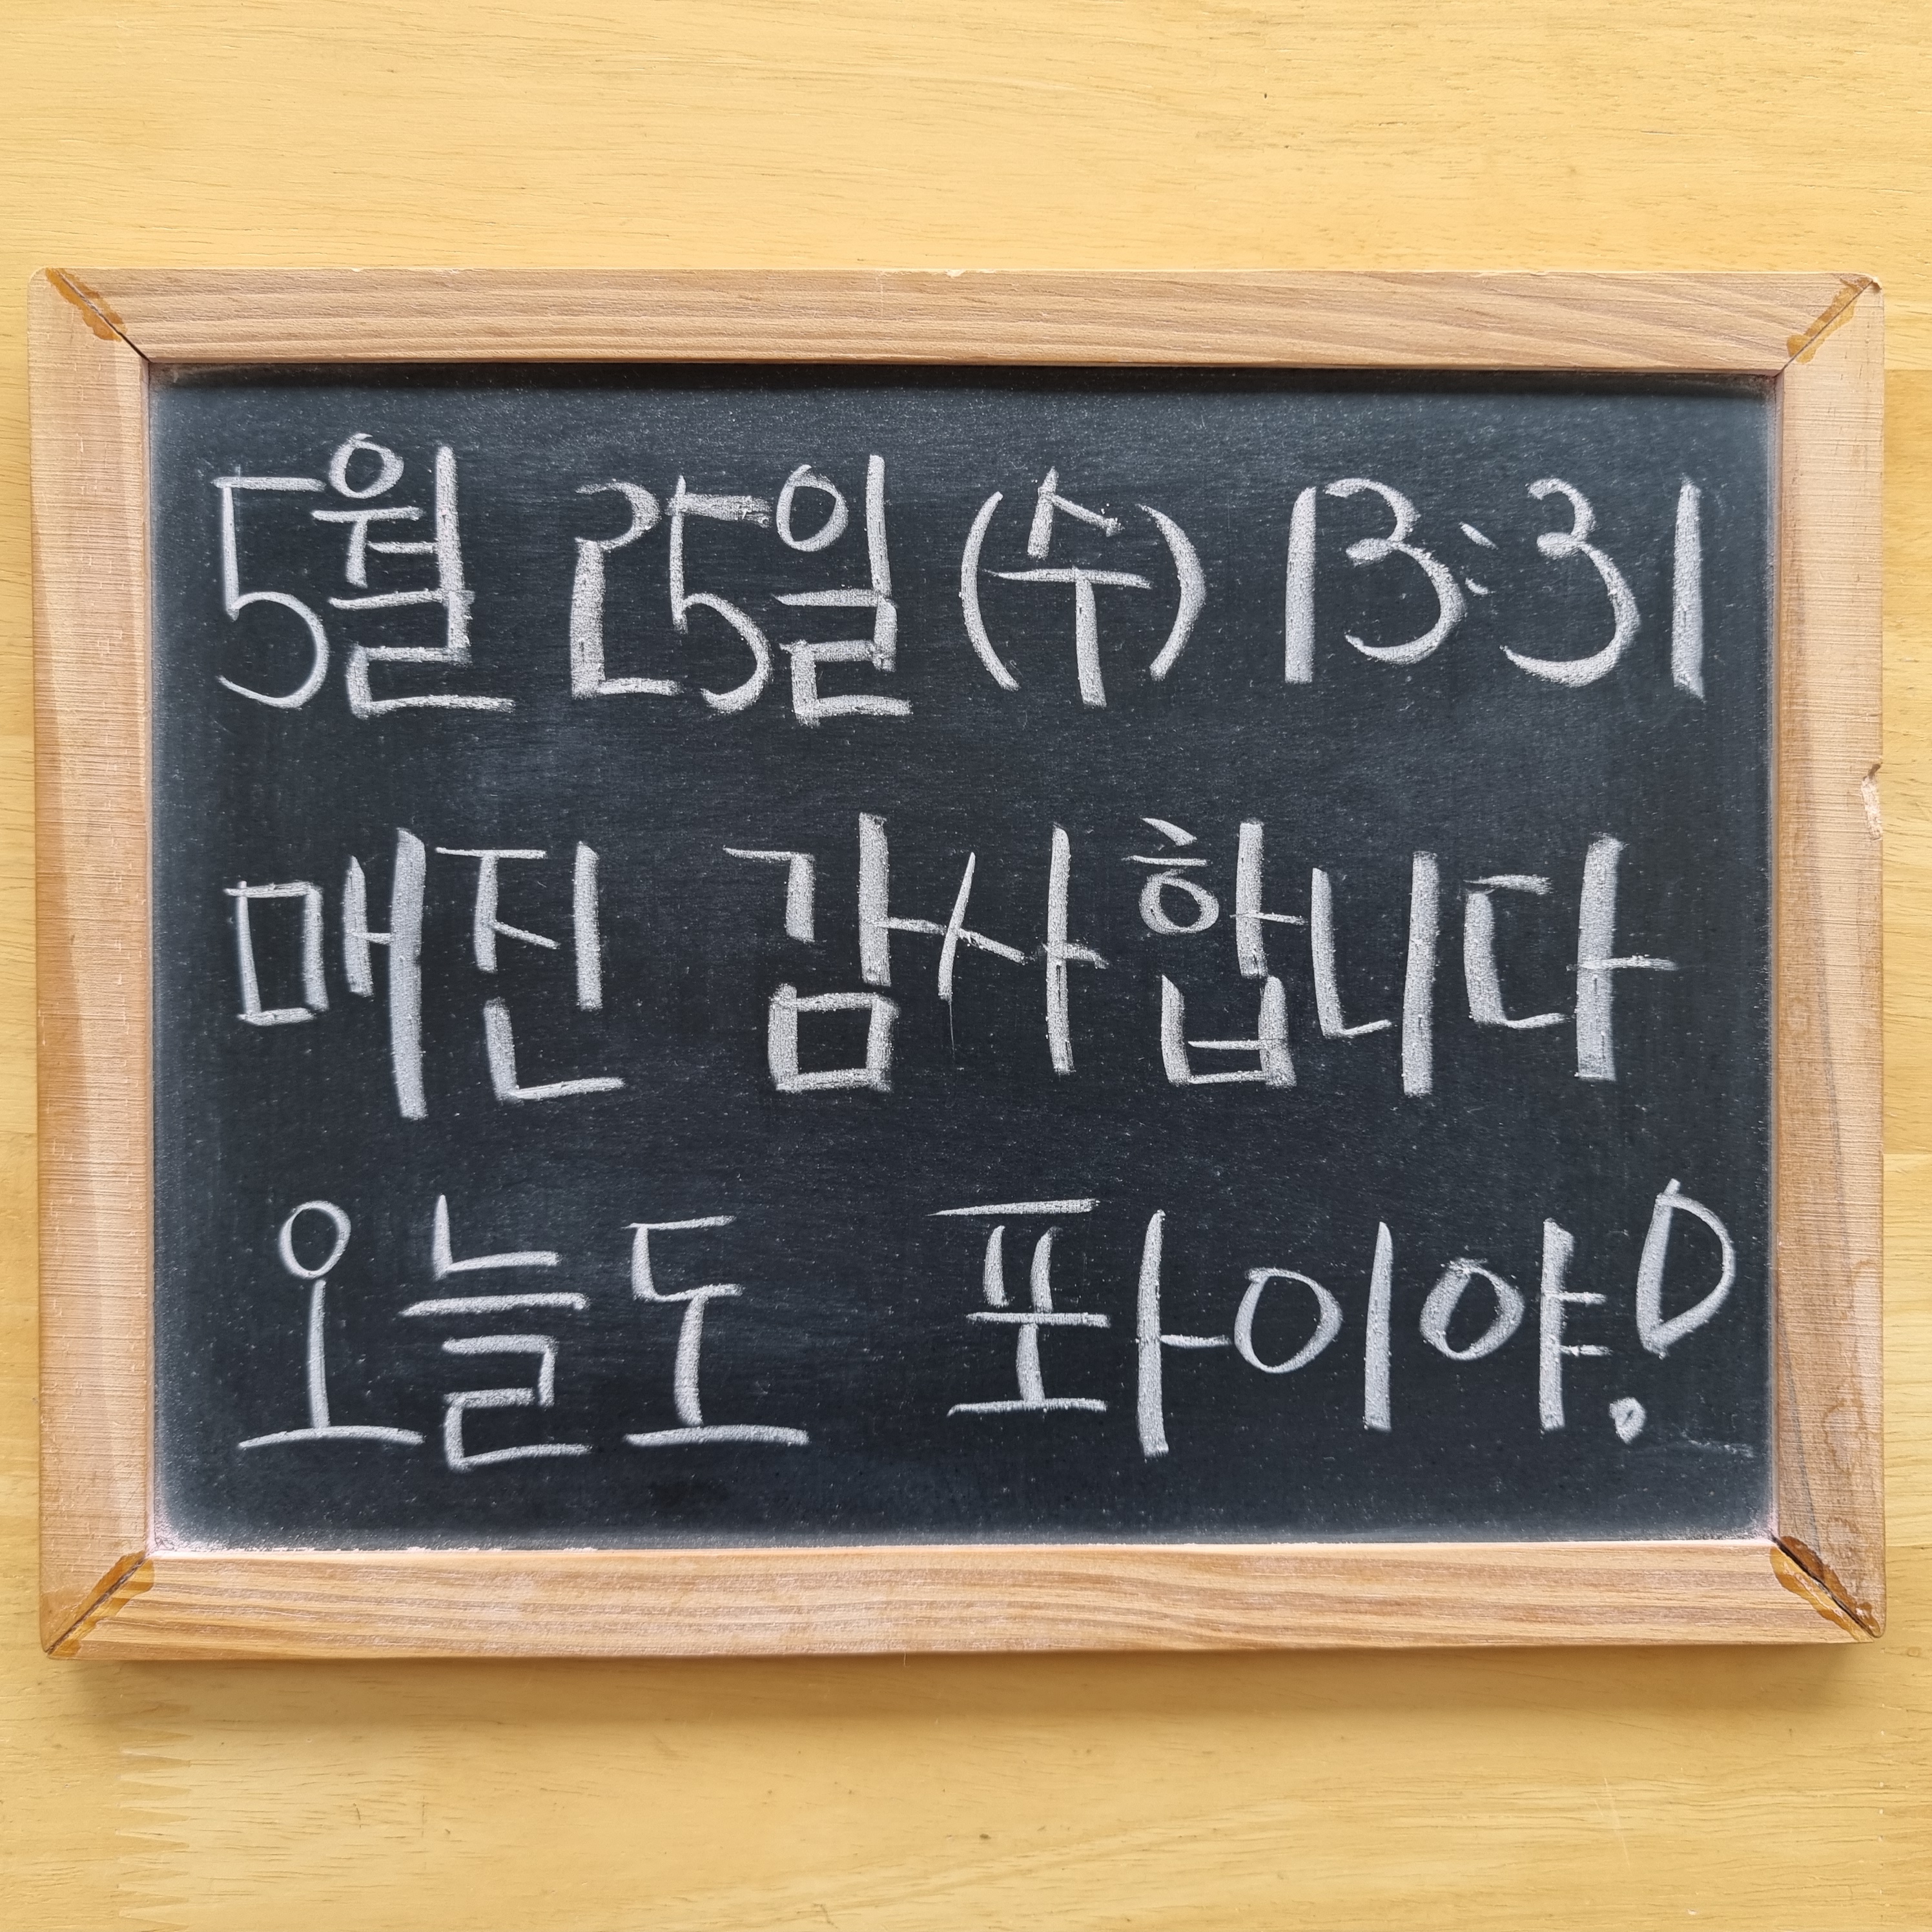 5월 25일 (수) 13:31
매진 감사합니다
오늘도 퐈이야!